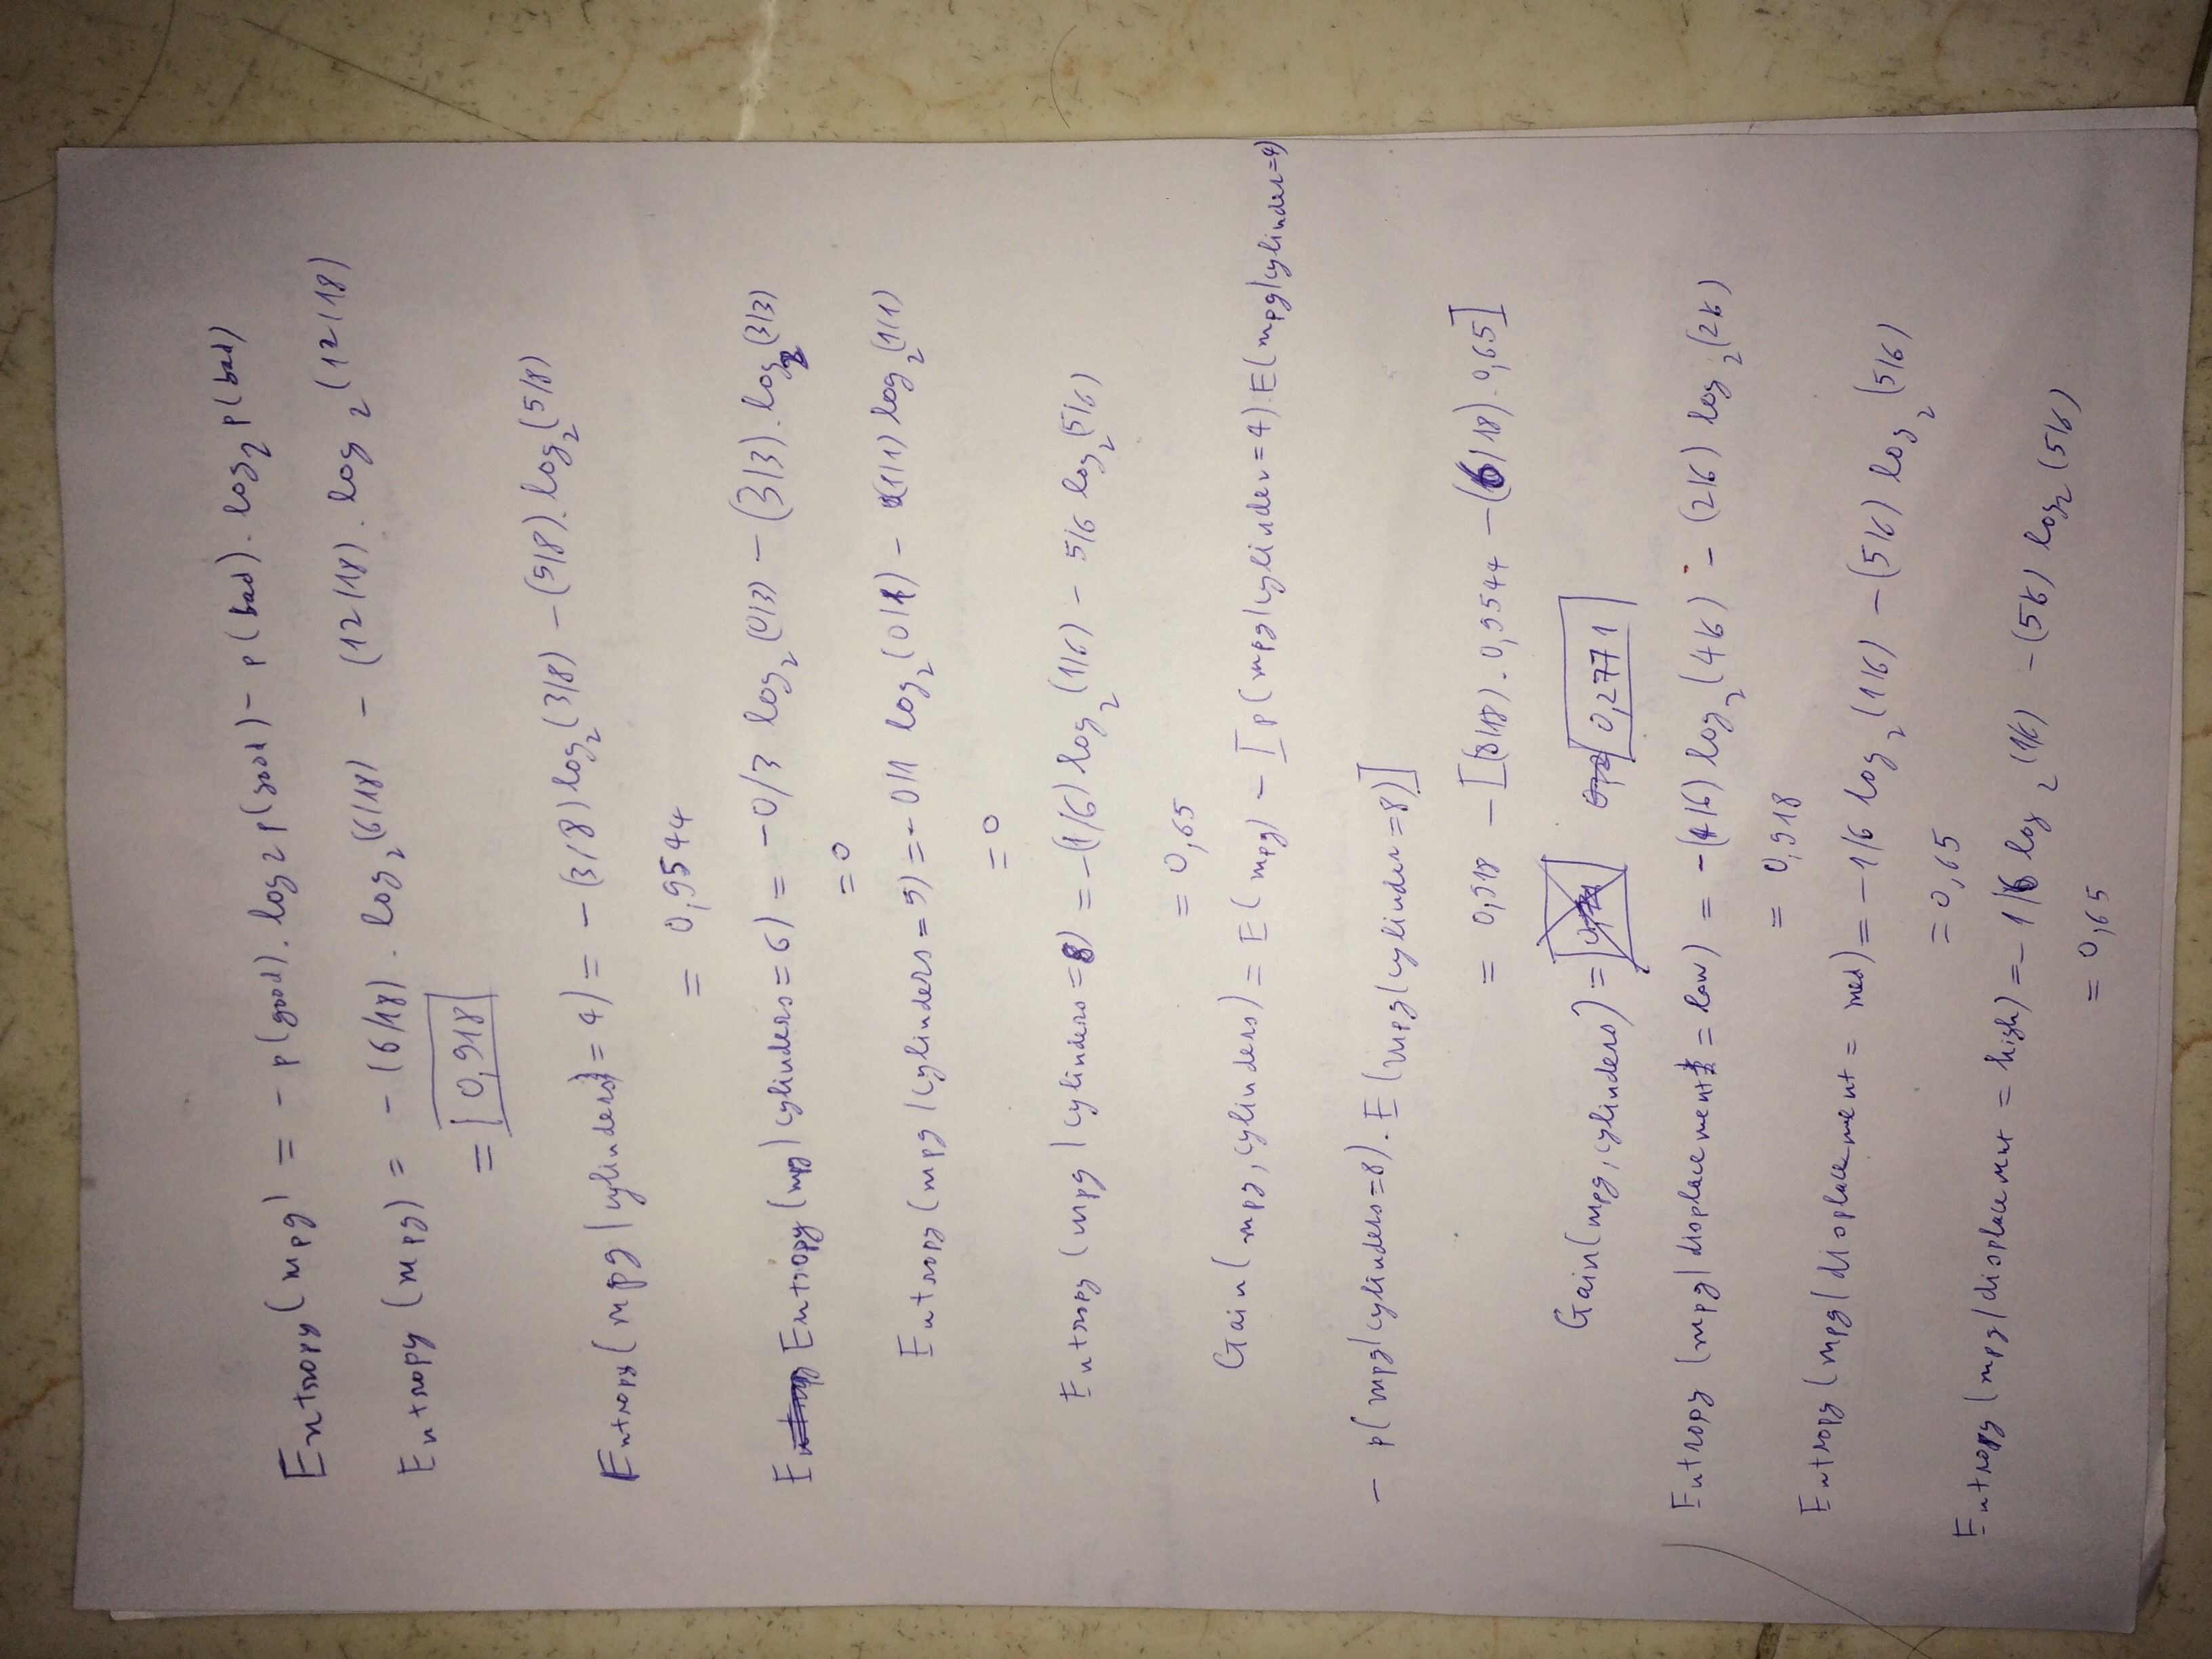 Entropy(mpg) = - p(good). log2 p(good) - p(bad). log2 p(bad)
Entropy (mpg) = - (6/18) . log2 (6/18) - (12/18) . log2 (12/18)
= 0,918
Entropy( mpg | cylinders = 4) = - (3/8) log2 (3/8) - (5/8). log2 (5/8)
= 0,9544
Entropy (mpg| cylinders = 6) = -0/3 log2 (0/3) - (3/3). log2 (3/3)
= 0
Entropy (mpg | cylinders = 5) = - 0/1 log2 (0/1) - (1/1) log2 (1/1)
= 0
Entropy (mpg | cylinders = 8) = -(1/6) log2 (1/6) - 5/6 log2 (5/6)
= 0,65
Gain( mpg, cylinders) = E( mpg) - [ p( mpg|cylinder = 4). E( mpg|cylinder=4)
- p( mpg|cylinders=8). E (mpg|cylinder = 8)]
= 0,918 - [(8/18) . 0,9544 - (6/18) . 0,65]
Gain(mpg, cylinders) = 0,2771
Entropy (mpg| displacement = low) = -(4/6) log2 (4/6) - (2/6) log2 (2/6)
= 0,918
Entropy (mpg| displacement = med) = - 1/6 log2 (1/6) - (5/6) log2 (5/6)
= 0,65
Entropy (mpg/displacement = high) = - 1/6 log2 (1/6) - (5/6) log2 (5/6)
= 0,65